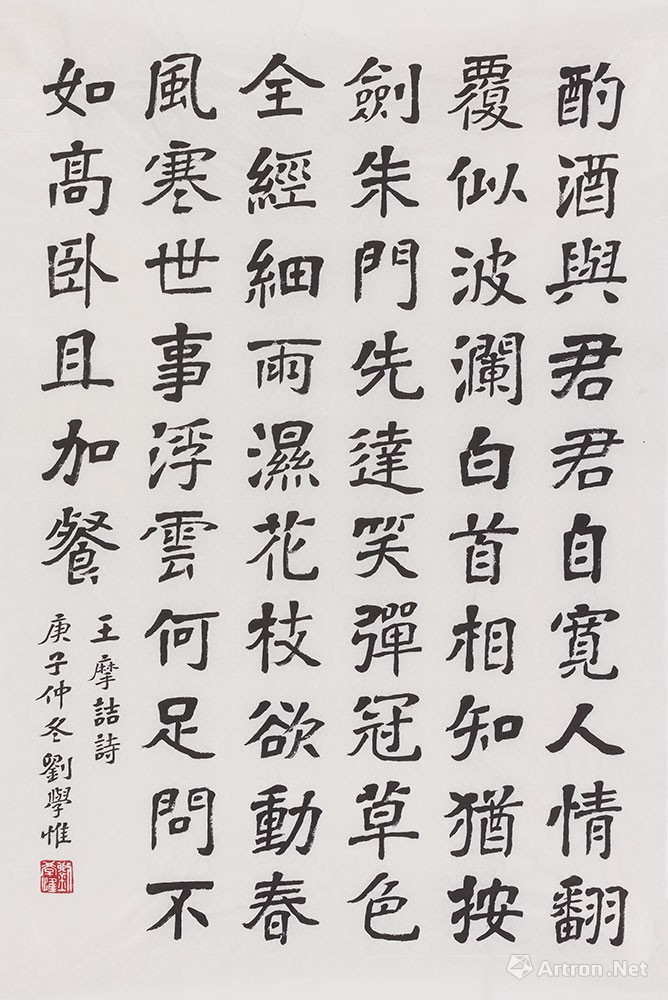 酌酒與君君自寬人情翻
覆似波瀾白首相知猶按
劍朱門先達笑彈冠草色
全經細雨濕花枝欲動春
風寒世事浮雲何足問不
如高卧且加餐
王摩詰詩
庚子仲冬劉學惟
Artron.Net